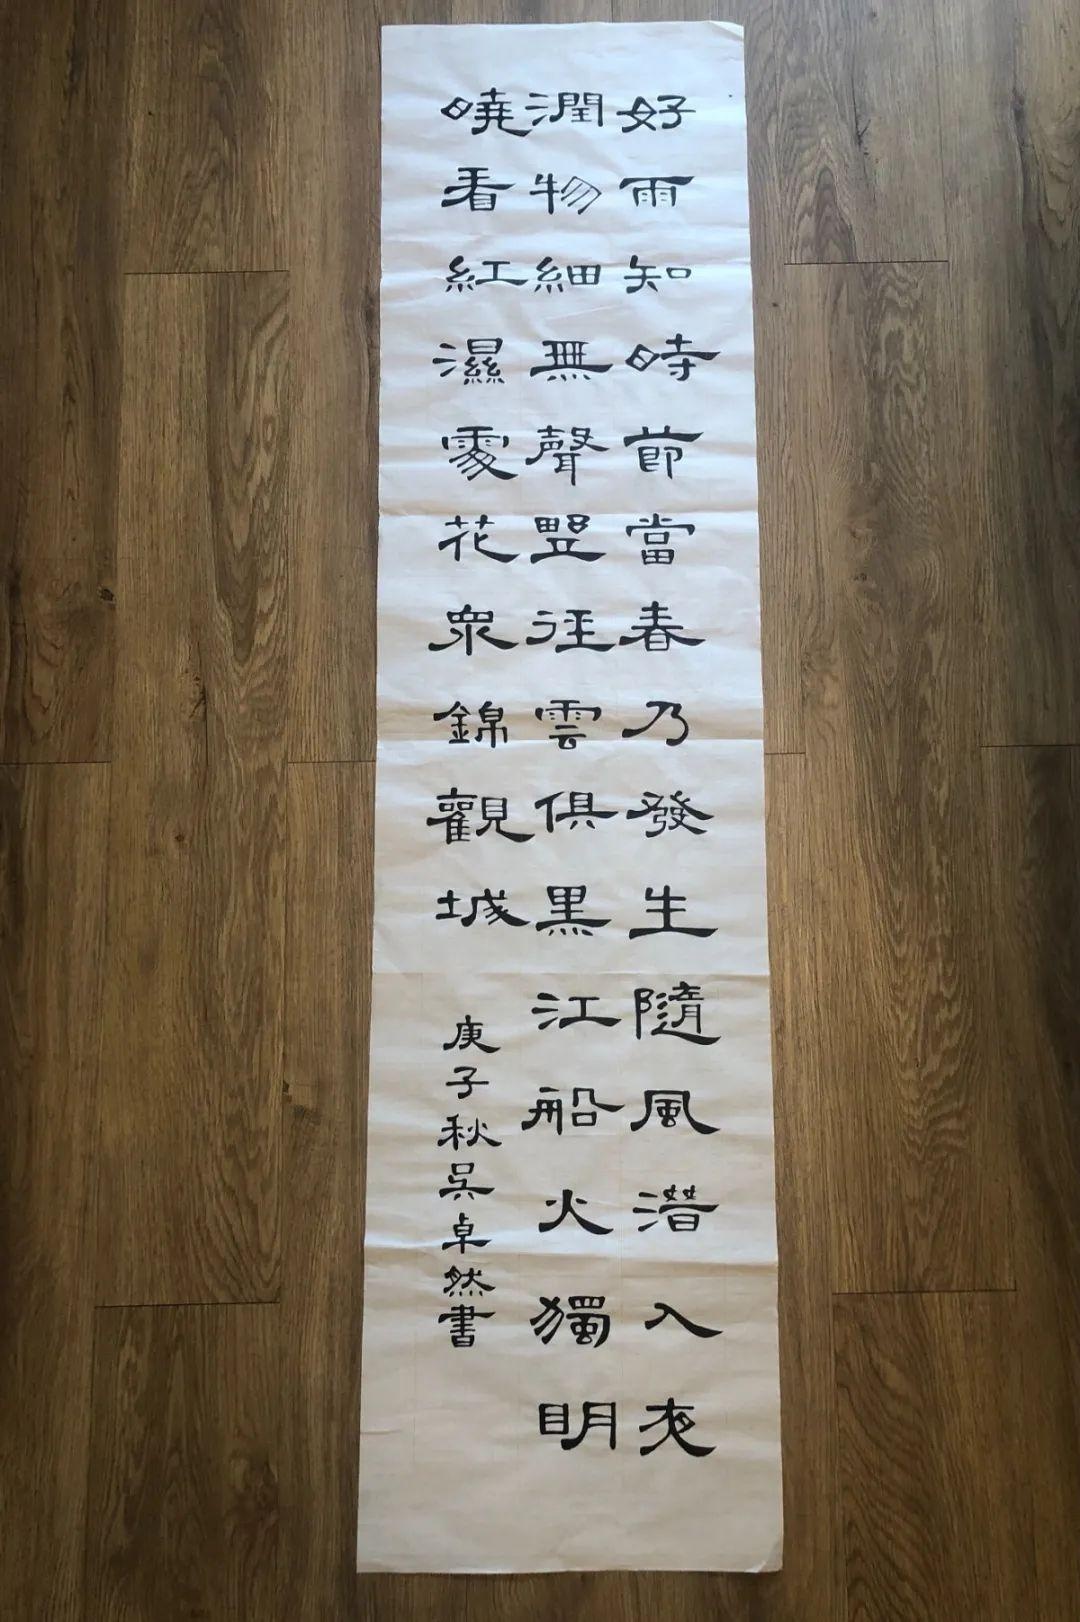 好雨知時節當春乃發生隨風潛入夜
潤物細無聲野徑雲俱黑江船火獨明
曉看紅濕處花衆錦觀城
庚子秋吳卓然書